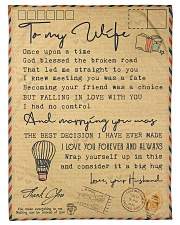 To my Wife
Once upon a time
God blessed the broken road
That led me straight to you
I knew meeting you was a fate
Becoming your friend was a choice
BUT FALLING IN LOVE WITH YOU
I had no control
And marrying you was
THE BEST DECISION I HAVE EVER MADE
I LOVE YOU FOREVER AND ALWAYS
Wrap yourself up in this
and consider it a big hug
Love, your Husband
Thank You
You mean everything to me